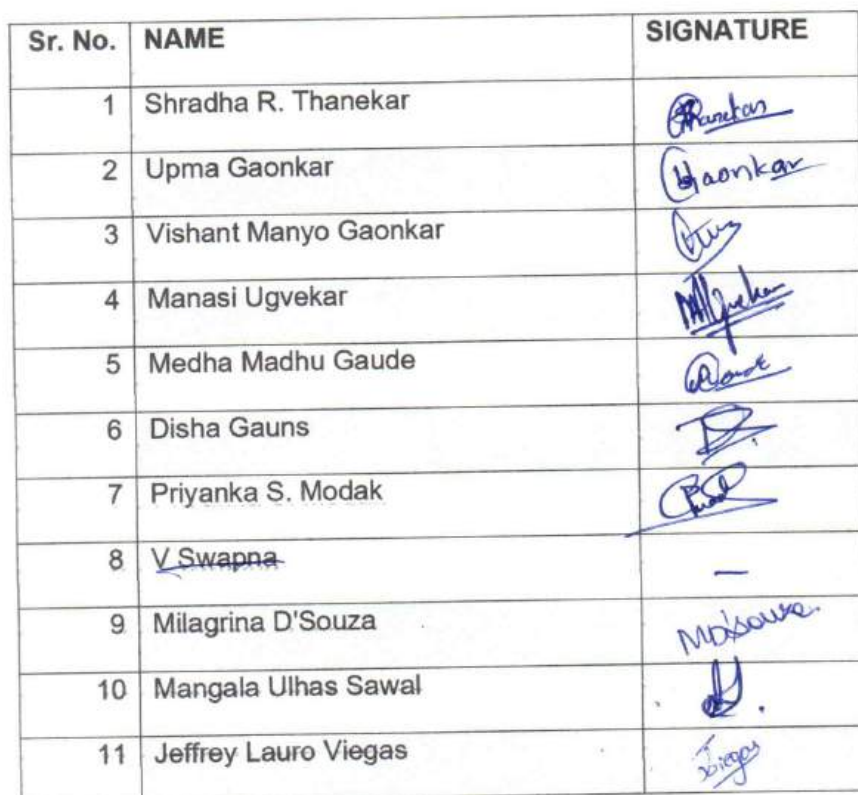 Sr. No. NAME SIGNATURE
1 Shradha R. Thanekar Thanekar
2 Upma Gaonkar Gaonkar
3 Vishant Manyo Gaonkar
4 Manasi Ugvekar
5 Medha Madhu Gaude
6 Disha Gauns
7 Priyanka S. Modak
8 V Swapna —
9 Milagrina D'Souza MD'Souza
10 Mangala Ulhas Sawal
11 Jeffrey Lauro Viegas JViegas